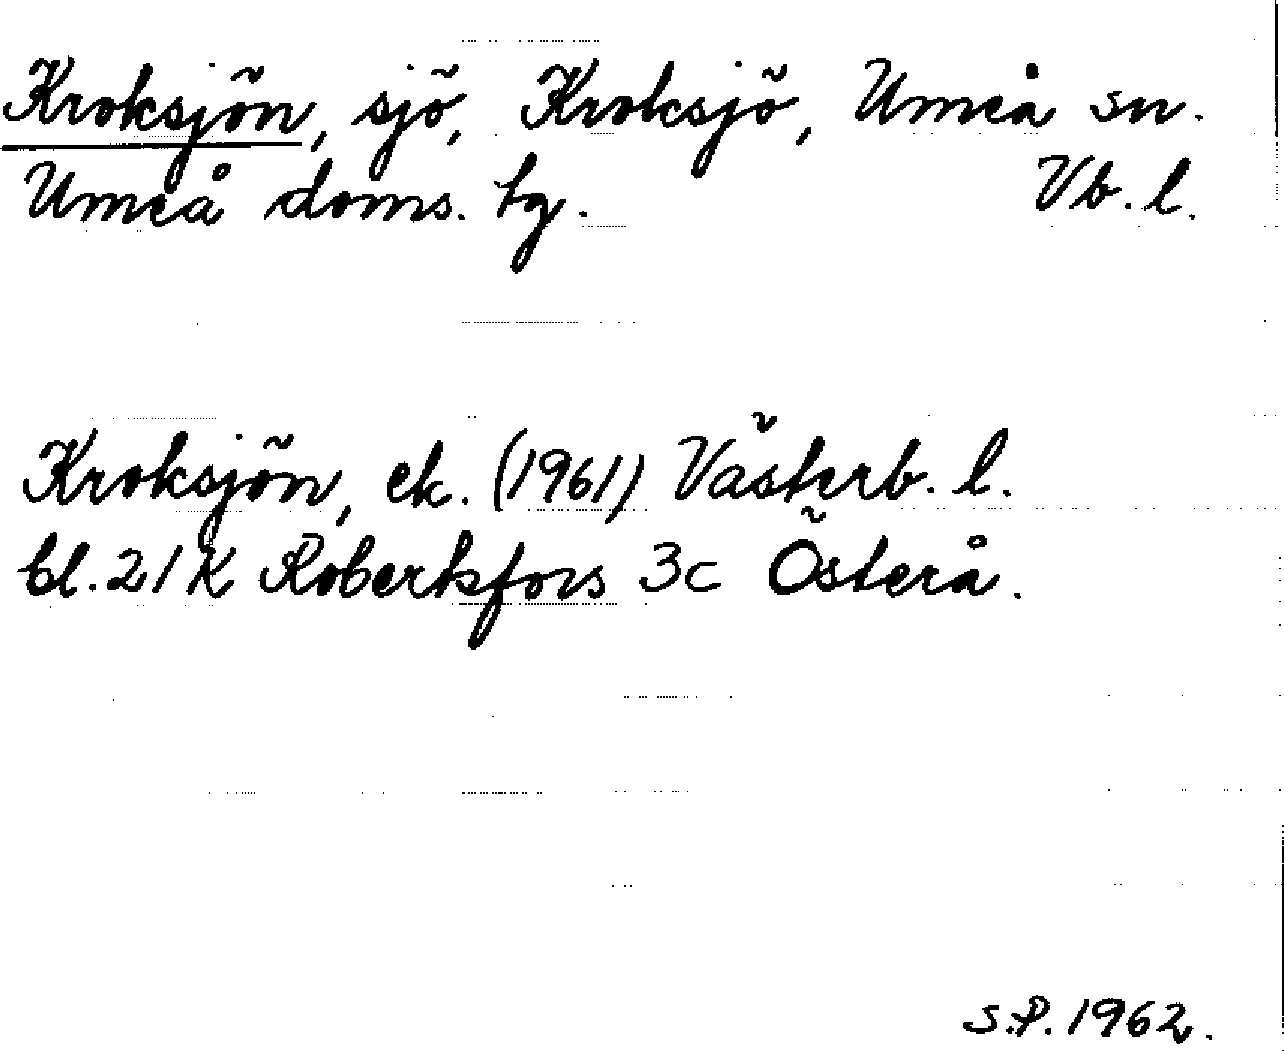 Kroksjön, sjö, Kroksjö, Umeå sn.
Umeå doms. tg. Vb. l.
Kroksjön, ek. (1961) Västerb. l.
bl. 21 K Robertsfors 3c Österå.
S.P. 1962.